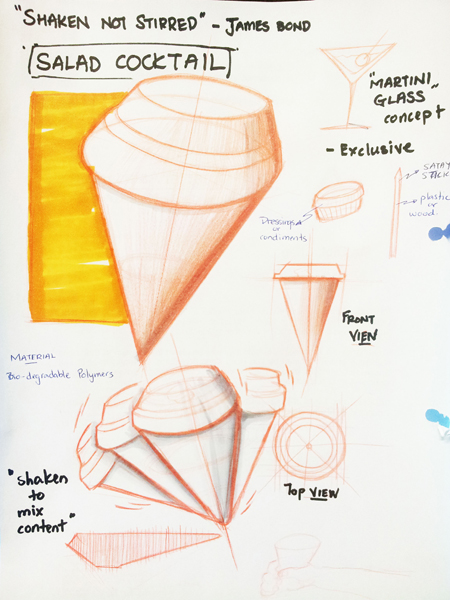 "SHAKEN NOT STIRRED" - JAMES BOND
SALAD COCKTAIL
"MARTINI
GLASS"
concept
- Exclusive
SATAY
STICK
plastic
or
wood.
Dressings
or
condiments
FRONT
VIEW
MATERIAL
Bio-degradable Polymers
"shaken
to
mix
content"
Top VIEW